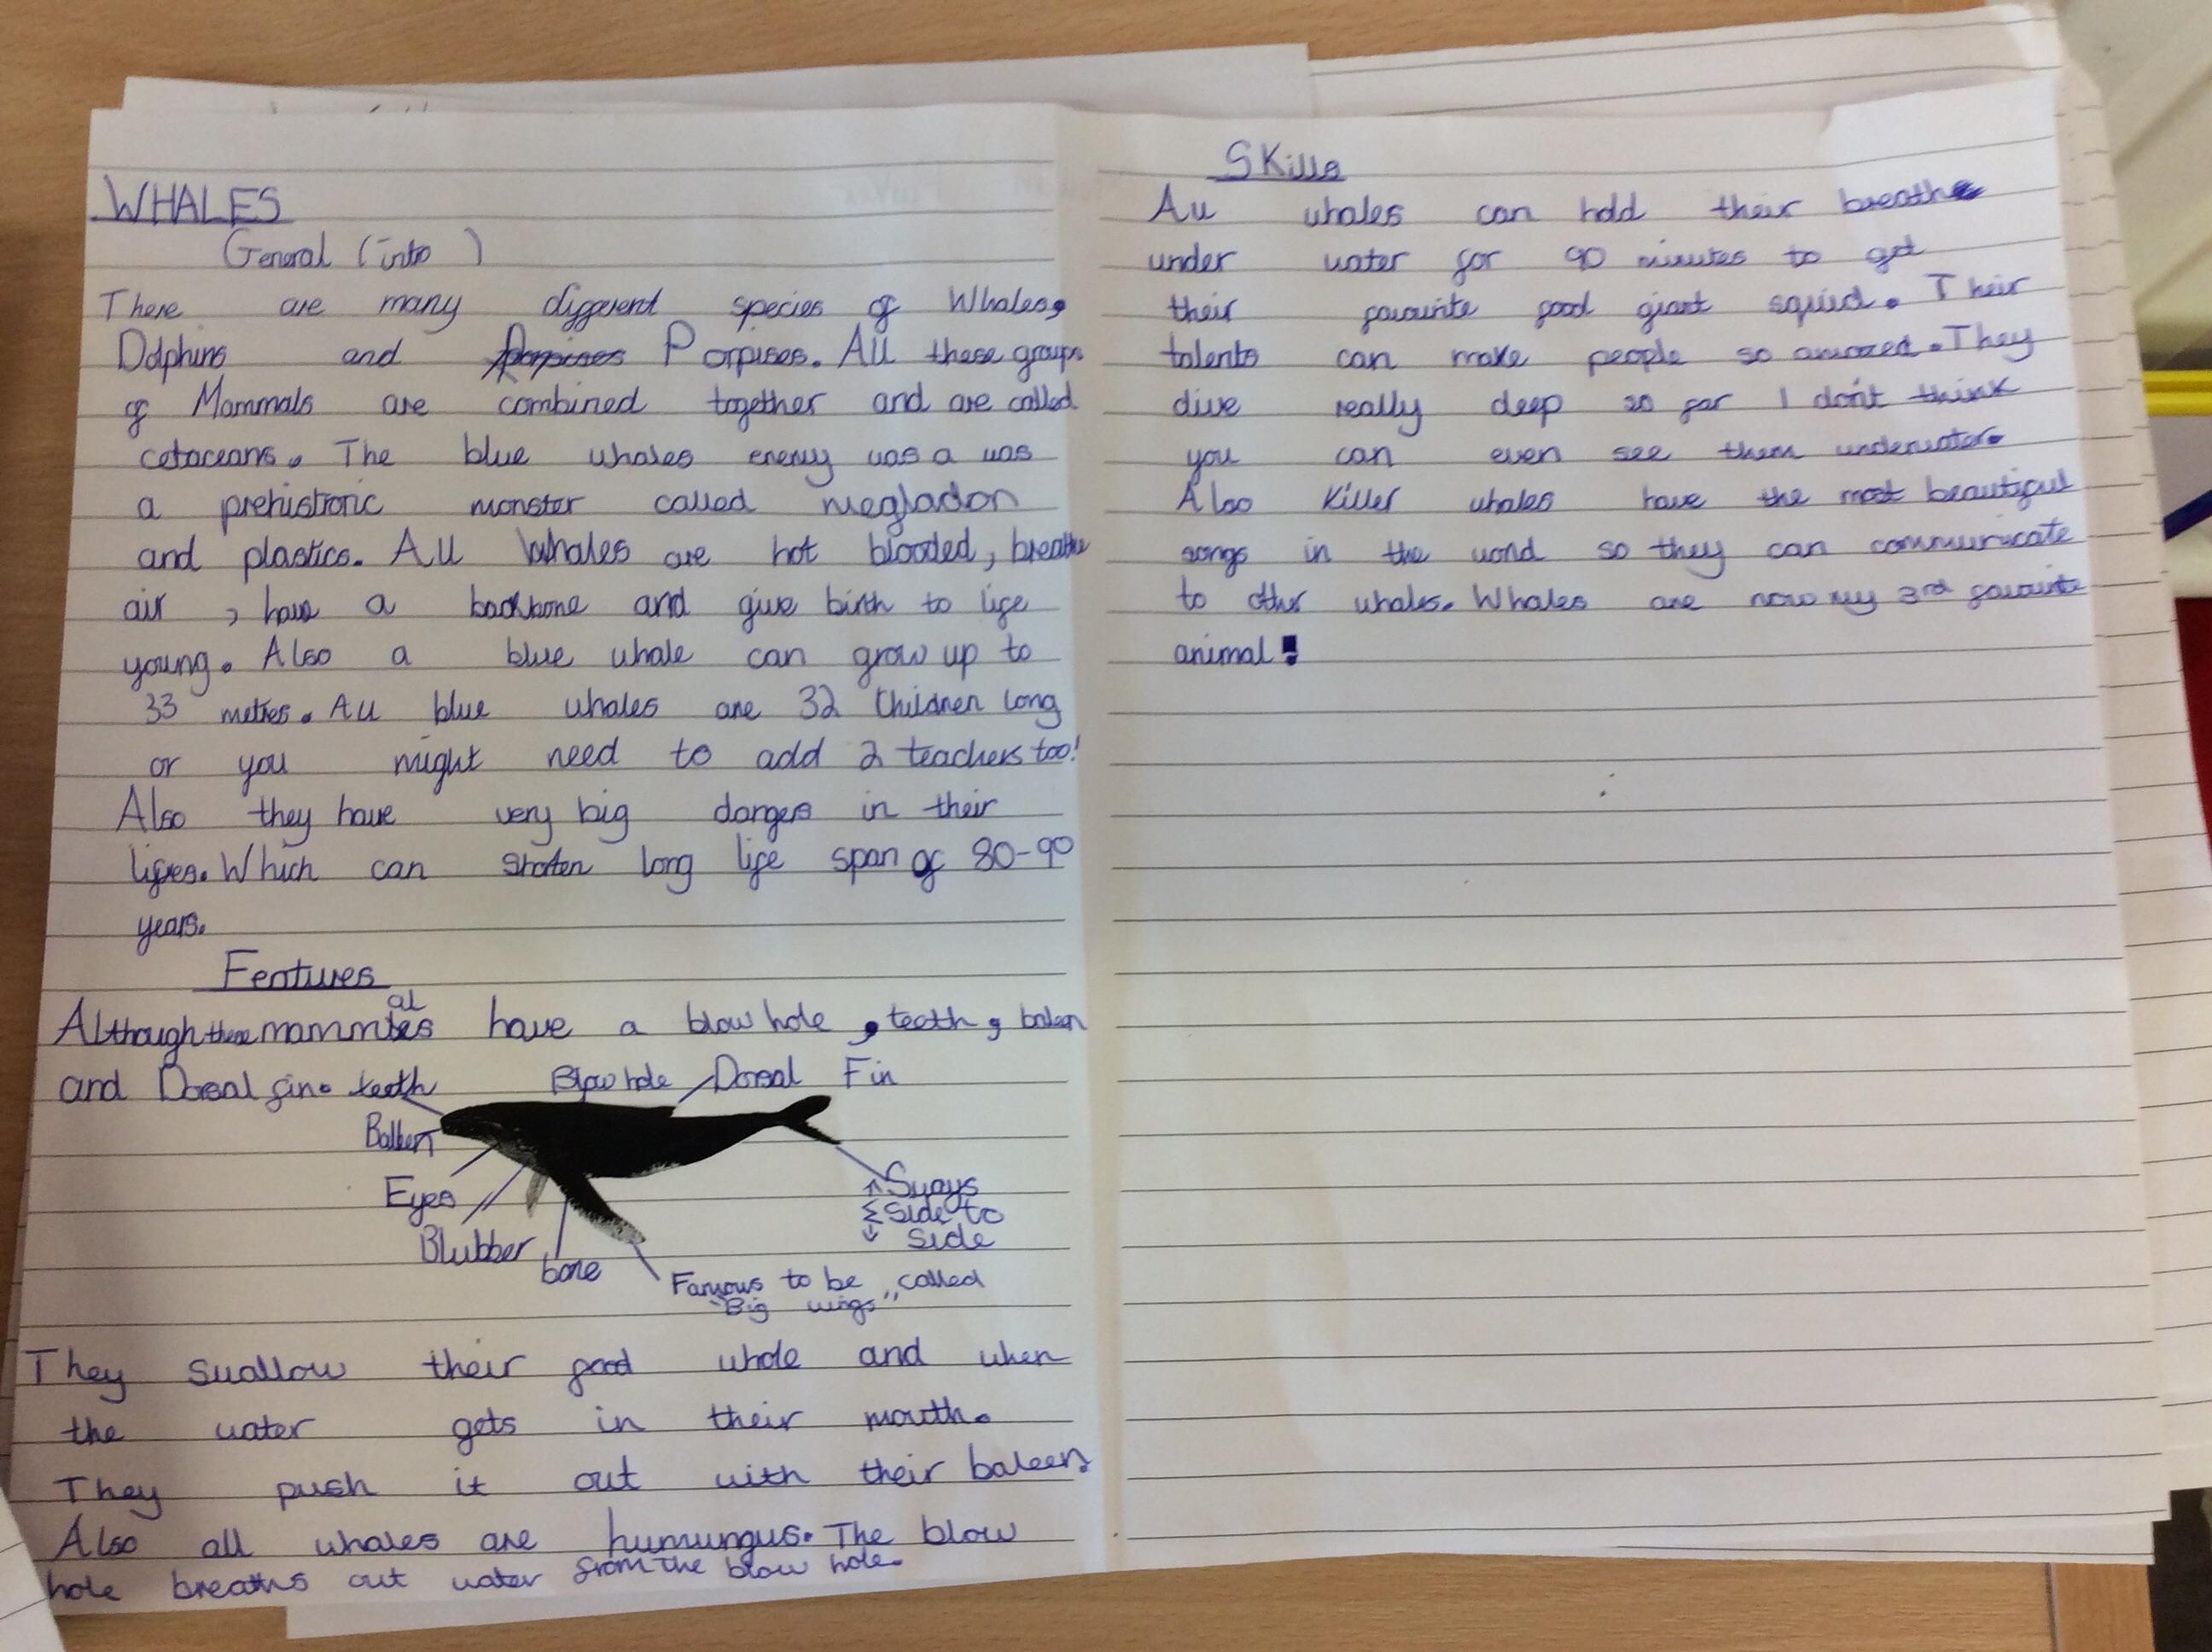 WHALES
General (into )
There are many different species of Whales,
Dolphins and Porpises Porpises. All these groups
of Mammals are combined together and are called
cetaceans. The blue whales enemy was a was
a prehistroric monster called megladon
and plastics. All Whales are hot blooded, breathe
air , have a backbone and give birth to life
young. Also a blue whale can grow up to
33 metres. All blue whales are 32 Children long
or you might need to add 2 teachers too!
Also they have very big dangers in their
lifes. Which can shorten long life span of 80-90
years.
Features
al
Although these mammles have a blow hole , teeth , balen
and Dorsal fin.
teeth
Blow hole
Dorsal Fin
Balleen
Eyes
Blubber
bone
Sways
Side to
Side
Famous to be called
"Big wings"
They swallow their food whole and when
the water gets in their mouth.
They push it out with their baleen
Also all whales are humungus. The blow
hole breaths out water from the blow hole.
Skills
All whales can hold their breath
under water for 90 minutes to get
their favourite food giant squid. Their
talents can make people so amazed. They
dive really deep so far I don't think
you can even see them underwater.
Also Killer whales have the most beautiful
songs in the world so they can communicate
to other whales. Whales are now my 3rd favourite
animal!